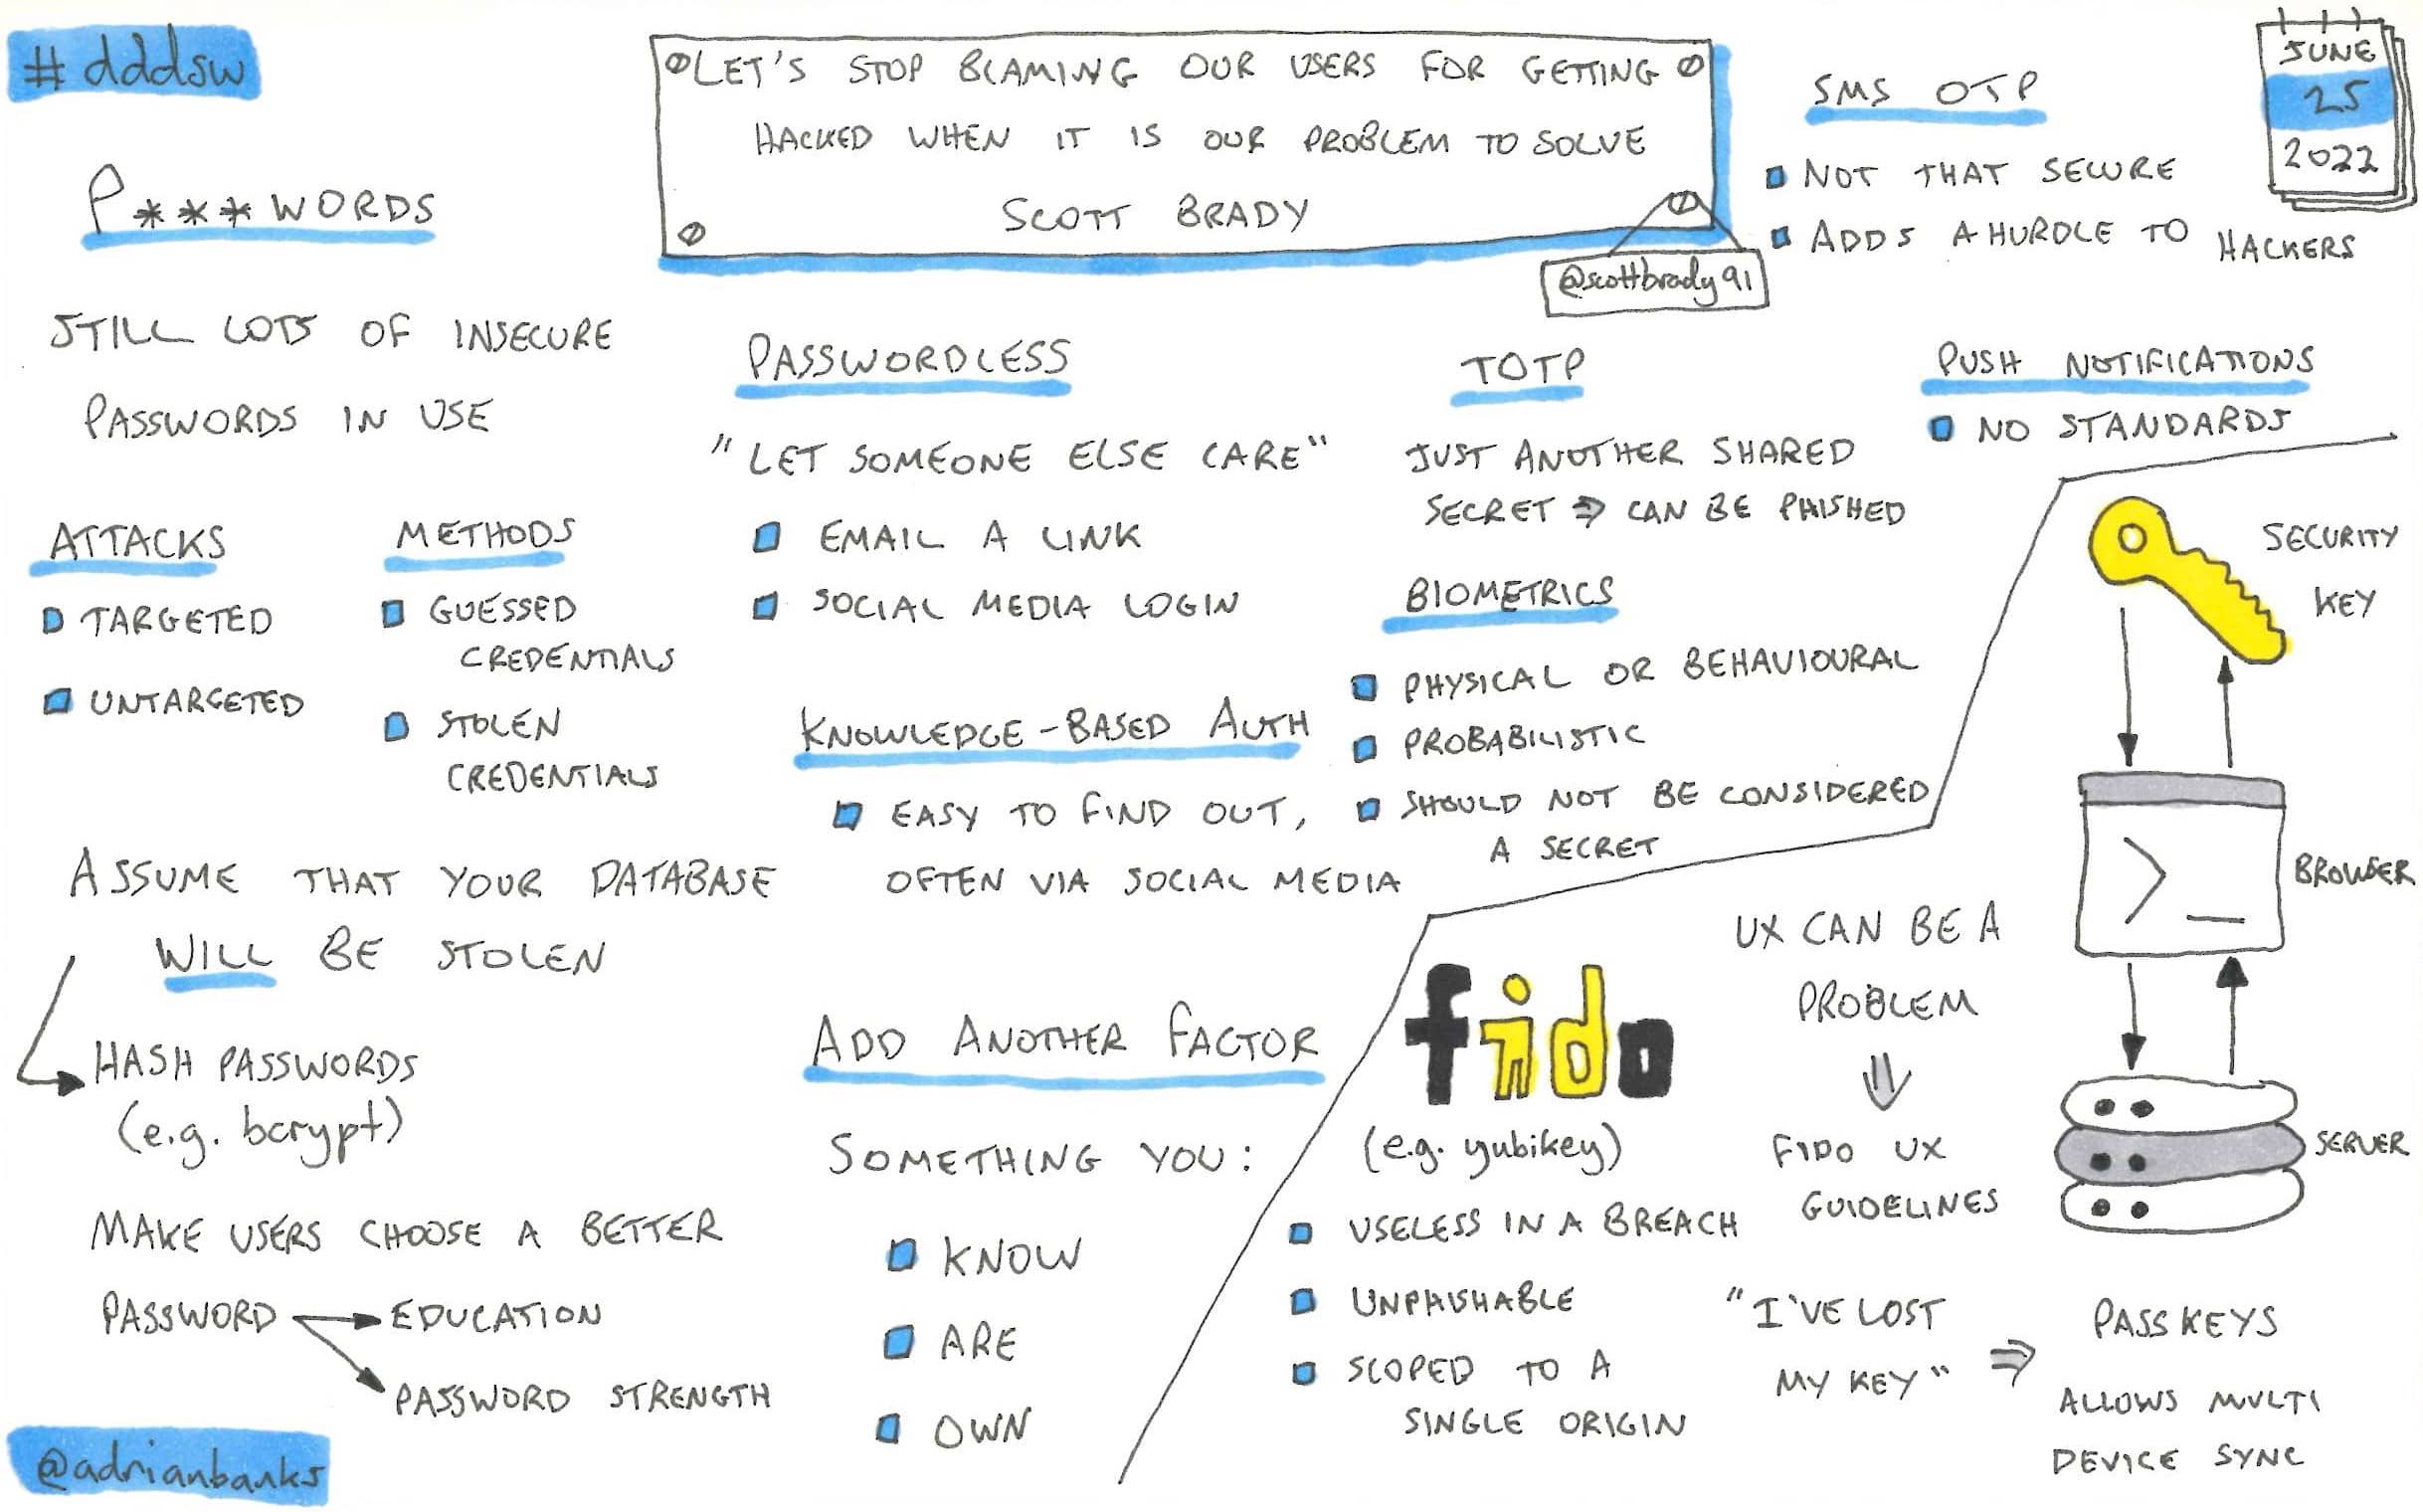 #dddsw
LET'S STOP BLAMING OUR USERS FOR GETTING
HACKED WHEN IT IS OUR PROBLEM TO SOLVE
SCOTT BRADY
@scottbrady91
JUNE
25
2022
P***WORDS
STILL LOTS OF INSECURE
PASSWORDS IN USE
ATTACKS
TARGETED
UNTARGETED
METHODS
GUESSED
CREDENTIALS
STOLEN
CREDENTIALS
ASSUME THAT YOUR DATABASE
WILL BE STOLEN
HASH PASSWORDS
(e.g. bcrypt)
MAKE USERS CHOOSE A BETTER
PASSWORD
EDUCATION
PASSWORD STRENGTH
@adrianbanks
PASSWORDLESS
"LET SOMEONE ELSE CARE"
EMAIL A LINK
SOCIAL MEDIA LOGIN
KNOWLEDGE-BASED AUTH
EASY TO FIND OUT,
OFTEN VIA SOCIAL MEDIA
ADD ANOTHER FACTOR
SOMETHING YOU:
KNOW
ARE
OWN
SMS OTP
NOT THAT SECURE
ADDS A HURDLE TO HACKERS
TOTP
JUST ANOTHER SHARED
SECRET ⇒ CAN BE PHISHED
PUSH NOTIFICATIONS
NO STANDARDS
BIOMETRICS
PHYSICAL OR BEHAVIOURAL
PROBABILISTIC
SHOULD NOT BE CONSIDERED
A SECRET
fido
(e.g. yubikey)
USELESS IN A BREACH
UNPHISHABLE
SCOPED TO A
SINGLE ORIGIN
UX CAN BE A
PROBLEM
FIDO UX
GUIDELINES
"I'VE LOST
MY KEY"
PASSKEYS
ALLOWS MULTI
DEVICE SYNC
SECURITY
KEY
BROWSER
SERVER